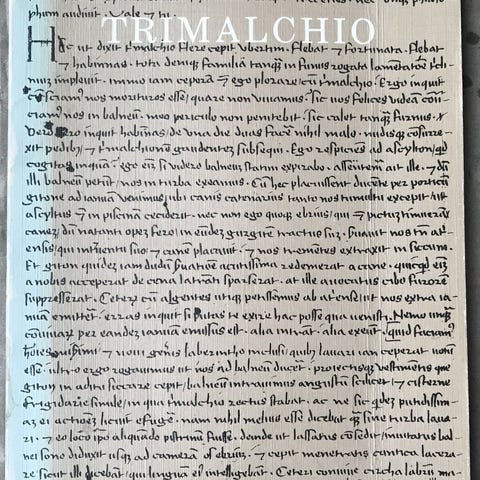 phum audiuit. Vale ⁊ tu.
TRIMALCHIO
Hec ut dixit Trimalchio flere cepit ubertim. flebat ⁊ fortunata. flebat
⁊ habinnas. tota deniq familia tanq̃ in funus rogata lamentatōe
nuz impleuit. immo iam ceperā ⁊ ego plorare / cū trimalchio. Ergo inquit
cū sciam9 nos morituros esse / quare non uiuamus. sic uos felices uideā
ciam9 nos in balneū. meo periculo non penitebit. sic calet tanq̃ furnus.
Vero uero inquit habinnas / de una die duas facē nihil malo. nudisq consurre-
xit pedib9 / ⁊ trimalchionē gaudentez subsequi. Ego respiciēs ad ascylton / qd
cogitas inquā. ego eī si uidero balneuz statim expirabo. assētemr̄ ait ille. ⁊ dū
illi balneū petūt / nos in turba exeamus. Cū hec placuissent ducēte per porticū
gitone ad ianuā uenimus / ubi canis catenarius tanto nos tumultu excepit / ut
ascyltus ⁊ in piscinā ceciderit. nec non ego quoq ebrius / qui ⁊ pictuz timuerā
canez / dū natanti opez fero / in eūdez gurgitē tractus suz. suauit nos tn̄
ensis / qui intuentu suo ⁊ canē placauit. ⁊ nos tremētes extraxit in siccum.
Et giton quidez iam dudū acutissima redemerat a cane. quicqd eiz
a nobis acceperat de cena latrāti sparserat. at ille auocatus cibo furorē
suppresserat. Ceterū cū algentes utiq petissemus ab atense / ut nos extra ia-
nuā emittet. erras inquit si putas te exire hac posse qua uenisti. Nemo unq̃
cōuiuaꝝ per eandez ianuā emissus est. alia intrāt. alia exeūt. quid faciam9
hōies miserimi ⁊ noui gnīs laberintho inclusi / quib9 lauari iam ceperat
esse. ultro ergo rogauimus ut nos ad balneū ducet. proiectisq uestimentis que
giton in aditu siccare cepit / balneū intrauimus angustū scilicet ⁊ cisterne
frigidarie simile / in qua trimalchio rectus stabat. ac ne sic quez putidissim-
az ei actionez licuit effugē. nam nihil melius esse dicebat q̃ sine turba laua-
ri. ⁊ eo loco ipo aliquādo pistrinū fuisse. donde ut lassatus cōsedit / inuitatus bal-
nei sono diduxit usq ad camerā os ebriuz. ⁊ cepit menecratis cantica lacera-
re sicut illi dicebāt / qui linguā ei9 intelligebāt. Ceteri conuiue circha labruz ma-